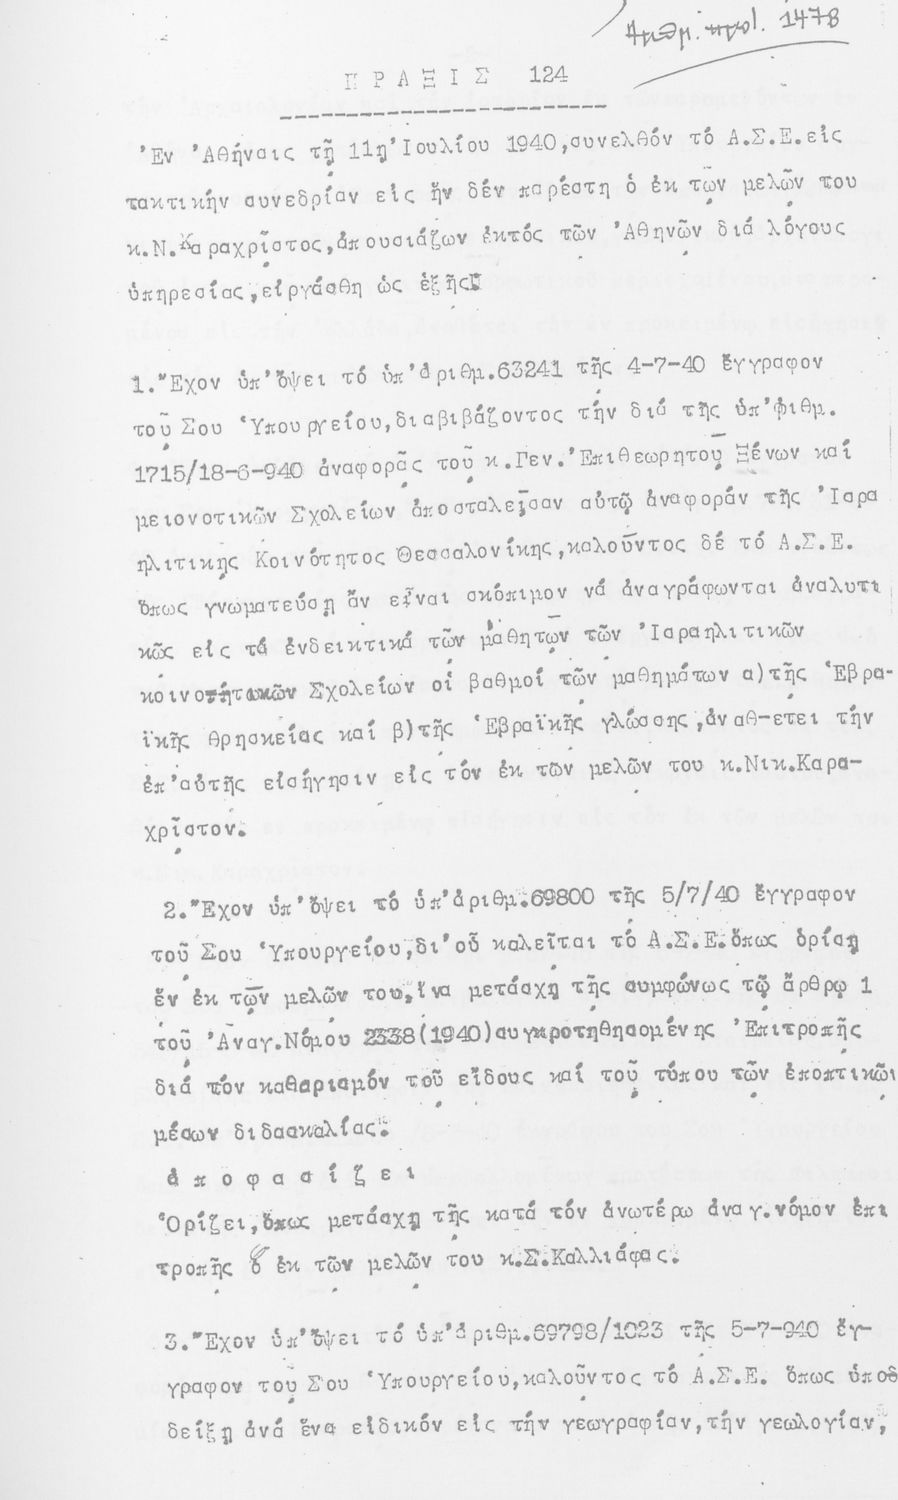 Ἀριθμ. πρωτ. 1478
ΠΡΑΞΙΣ 124
Ἐν Ἀθήναις τῇ 11ῃ Ἰουλίου 1940, συνελθόν τό Α.Σ.Ε. εἰς
τακτικήν συνεδρίαν εἰς ἥν δέν παρέστη ὁ ἐκ τῶν μελῶν του
κ.Ν.Καραχρῖστος, ἀπουσιάζων ἐκτός τῶν Ἀθηνῶν διά λόγους
ὑπηρεσίας, εἰργάσθη ὡς ἑξῆς:
1. Ἔχον ὑπ' ὄψει τό ὑπ' ἀριθμ. 63241 τῆς 4-7-40 ἔγγραφον
τοῦ Σου Ὑπουργείου, διαβιβάζοντος τήν διά τῆς ὑπ' ἀριθμ.
1715/18-6-940 ἀναφορᾶς τοῦ κ. Γεν. Ἐπιθεωρητοῦ Ξένων καί
μειονοτικῶν Σχολείων ἀποσταλεῖσαν αὐτῷ ἀναφοράν τῆς Ἰσρα
ηλιτικῆς Κοινότητος Θεσσαλονίκης, καλοῦντος δέ τό Α.Σ.Ε.
ὅπως γνωματεύσῃ ἄν εἶναι σκόπιμον νά ἀναγράφωνται ἀναλυτι
κῶς εἰς τά ἐνδεικτικά τῶν μαθητῶν τῶν Ἰσραηλιτικῶν
κοινοτήτων Σχολείων οἱ βαθμοί τῶν μαθημάτων α) τῆς Ἑβρα-
ϊκῆς θρησκείας καί β) τῆς Ἑβραϊκῆς γλώσσης, ἀναθ-ετει τήν
ἐπ' αὐτῆς εἰσήγησιν εἰς τόν ἐκ τῶν μελῶν του κ. Νικ. Καρα-
χρῖστον.
2. Ἔχον ὑπ' ὄψει τό ὑπ' ἀριθμ. 69800 τῆς 5/7/40 ἔγγραφον
τοῦ Σου Ὑπουργείου, δι' οὗ καλεῖται τό Α.Σ.Ε. ὅπως ὁρίσῃ
ἕν ἐκ τῶν μελῶν του, ἵνα μετάσχῃ τῆς συμφώνως τῷ ἄρθρῳ 1
τοῦ Ἀναγ. Νόμου 2338 (1940) συγκροτηθησομένης Ἐπιτροπῆς
διά τόν καθαρισμόν τοῦ εἴδους καί τοῦ τύπου τῶν ἐποπτικῶν
μέσων διδασκαλίας.
ἀποφασίζει
Ὁρίζει, ὅπως μετάσχῃ τῆς κατά τόν ἀνωτέρω ἀναγ. νόμον ἐπι
τροπῆς ὁ ἐκ τῶν μελῶν του κ. Σ. Καλλιάφας.
3. Ἔχον ὑπ' ὄψει τό ὑπ' ἀριθμ. 69798/1023 τῆς 5-7-940 ἔγ-
γραφον τοῦ Σου Ὑπουργείου, καλοῦντος τό Α.Σ.Ε. ὅπως ὑπο
δείξῃ ἀνά ἕνα εἰδικόν εἰς τήν γεωγραφίαν, τήν γεωλογίαν,